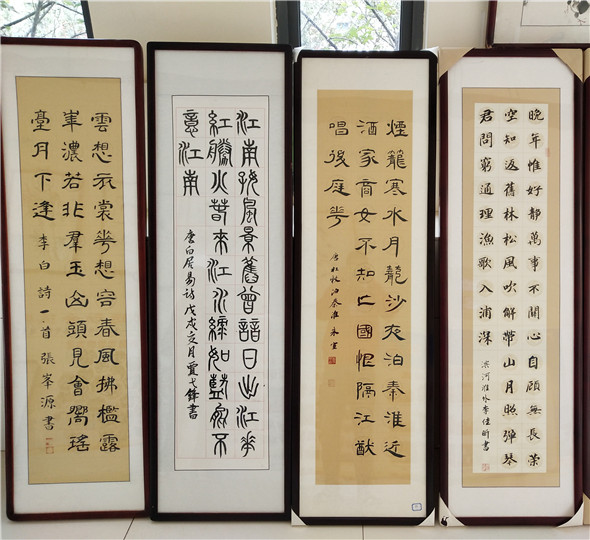 雲想衣裳華想容春風拂檻露
華濃若非羣玉山頭見會嚮瑤
臺月下逢
李白詩一首張峯源書
江南好風景舊曾諳日出江花
紅勝火春來江水綠如藍能不
憶江南
唐白居易詩戊戌月書
煙籠寒水月籠沙夜泊秦淮近
酒家商女不知亡國恨隔江猶
唱後庭花
唐杜牧泊秦淮
晚年惟好静萬事不關心自顧無長策
空知返舊林松風吹解帶山月照彈琴
君問窮通理漁歌入浦深
李佳昕書